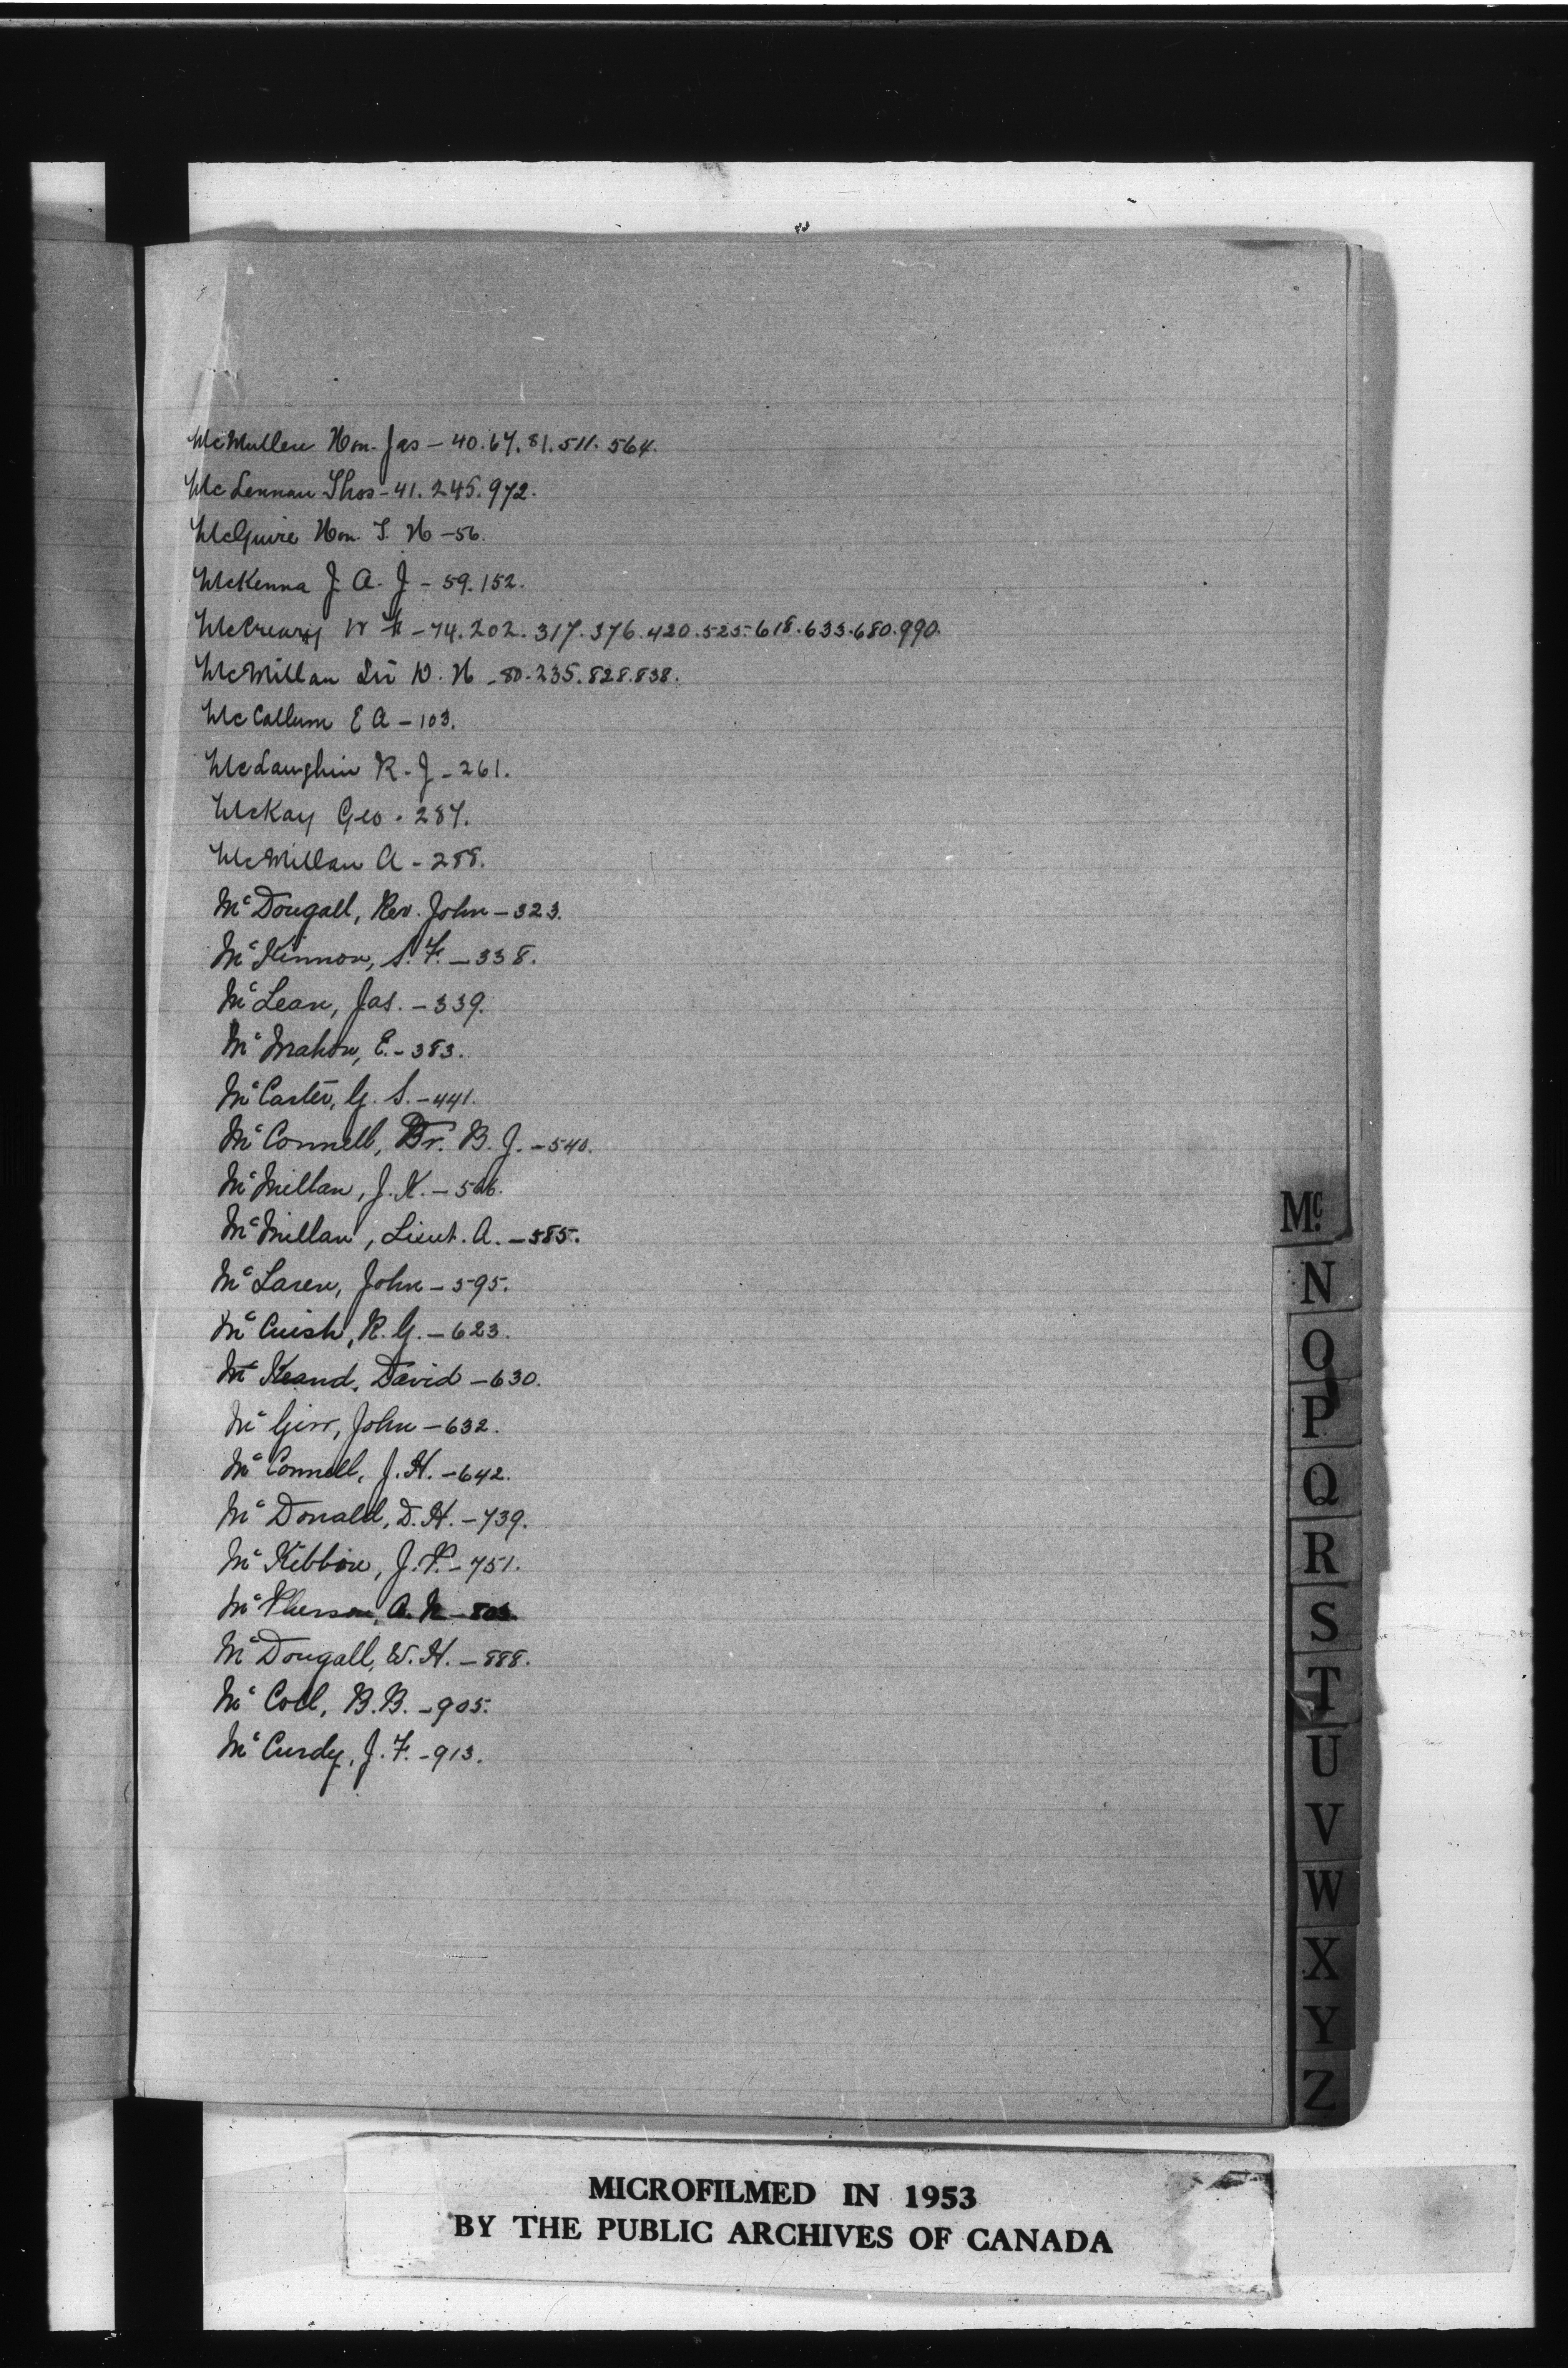 McMullen Hon. Jas – 40. 67. 81. 511. 564.
McLennan Thos – 41. 245. 972.
McGuire Hon. T. H – 56.
McKenna J. A. J – 59. 152.
McCreary W F – 74. 202. 317. 376. 420. 525. 618. 633. 680. 990.
McMillan Sir D. H – 80. 235. 828. 838.
McCallum E A – 103.
McLaughin R. J – 261.
McKay Geo. 287.
McMillan A – 288.
McDougall, Rev. John – 323.
McKinnon, S. F. – 338.
McLean, Jas. – 339.
McMahon, E. – 383.
McCarter, G. S. – 441.
McConnell, Dr. B. J. – 540.
McMillan, J. K. –
McMillan, Lieut. A. – 585.
McLaren, John – 595.
McCuish, R. G. – 623.
McKeand, David – 630.
McGirr, John – 632.
McConnell, J. H. – 642.
McDonald, D. H. – 739.
McKibbin, J. P. – 751.
McPherson, A.
McDougall, W. H. – 888.
McColl, B. B. – 905.
McCurdy, J. F. – 913.
Mc.
N
O
P
Q
R
S
T
U
V
W
X
Y
Z
MICROFILMED IN 1953
BY THE PUBLIC ARCHIVES OF CANADA